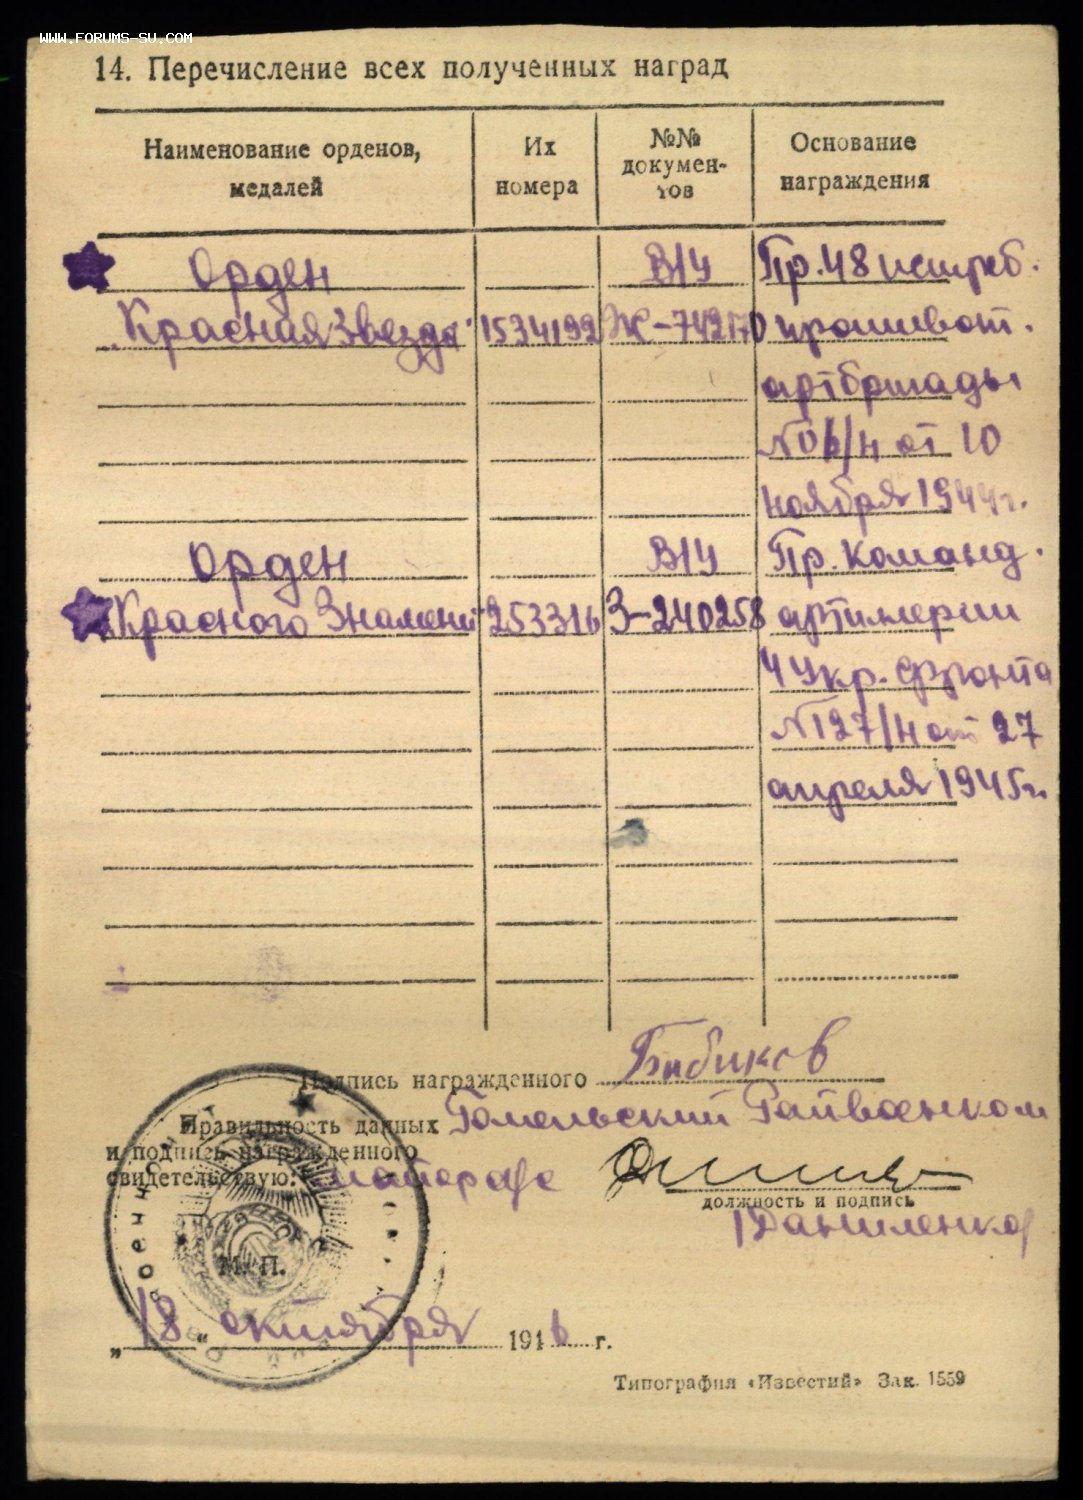 WWW.FORUMS-SU.COM
14. Перечисление всех полученных наград
Наименование орденов, медалей
Их номера
№№ докумен-тов
Основание награждения
Орден В/Ч Пр. 48 истреб.
„Красная Звезда" 1534192 Ж-742170 противот.
артбригады
№ 06/н от 10
ноября 1944 г.
Орден В/Ч Пр. Команд.
„Красного Знамени" 253316 З-240258 артиллерии
4 Укр. Фронта
№ 127/н от 27
апреля 1945 г.
Подпись награжденного Бибиков
Правильность данных Гомельский Райвоенком
и подпись награжденного
свидетельствую: майор а/с
должность и подпись
/Даниленко/
М. П.
„18" октября 1946 г.
Типография «Известий» Зак. 1559